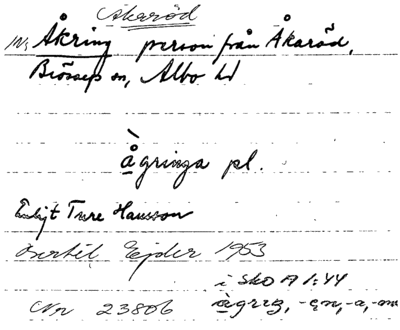 Åkaröd
Åkring person från Åkaröd,
Brösarp sn, Albo hd
ågringa pl.
Enligt Ture Hansson
Bertil Ejder 1953
i SkO A 1:44
Nr 23806 -en, -a, -na